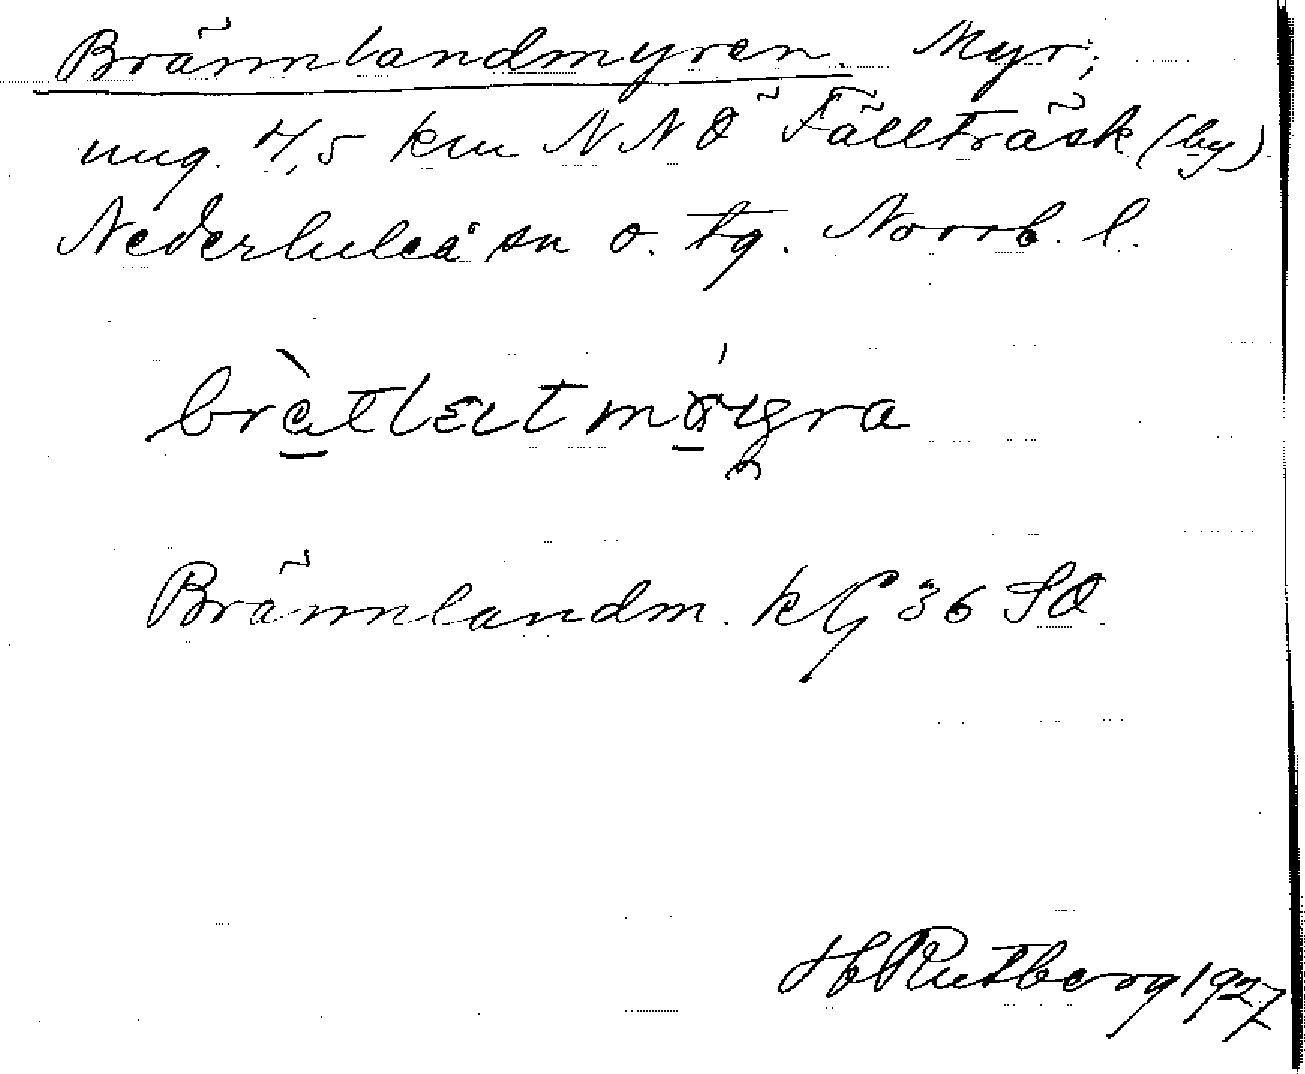 Brännlandmyren. Myr;
ung. 4,5 km NNÖ Fällträsk (by)
Nederluleå sn o. tg. Norrb. l.
Brännlandm. kG 36 SO.
H Rutberg 1927